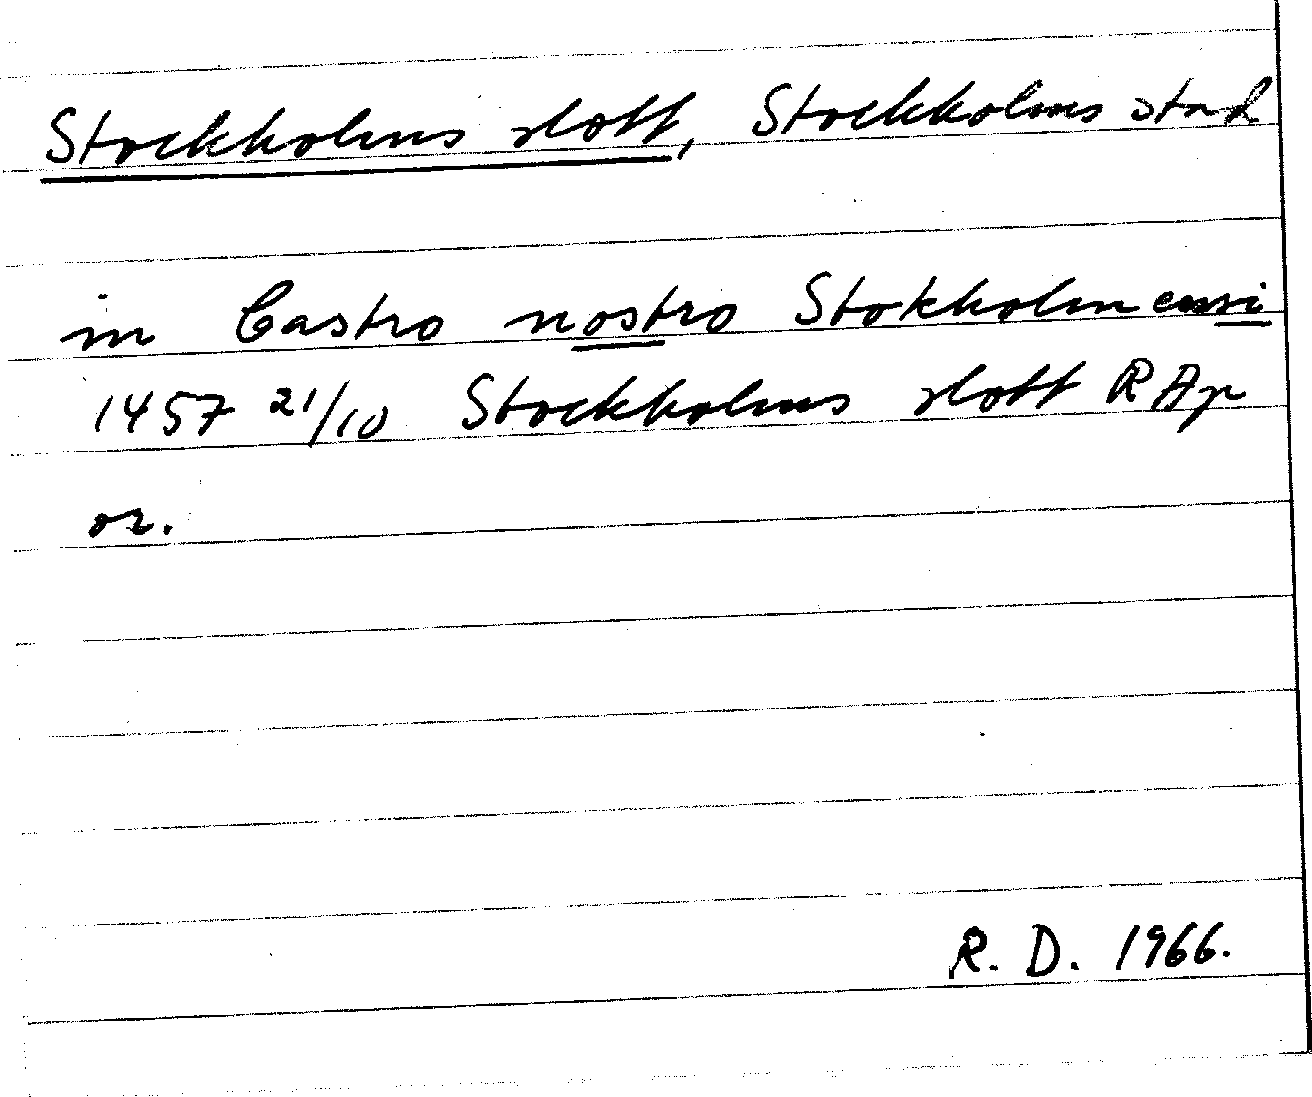 Stockholms slott, Stockholms stad
in Castro nostro Stokholmensi
1457 21/10 Stockholms slott RAp
or.
R. D. 1966.